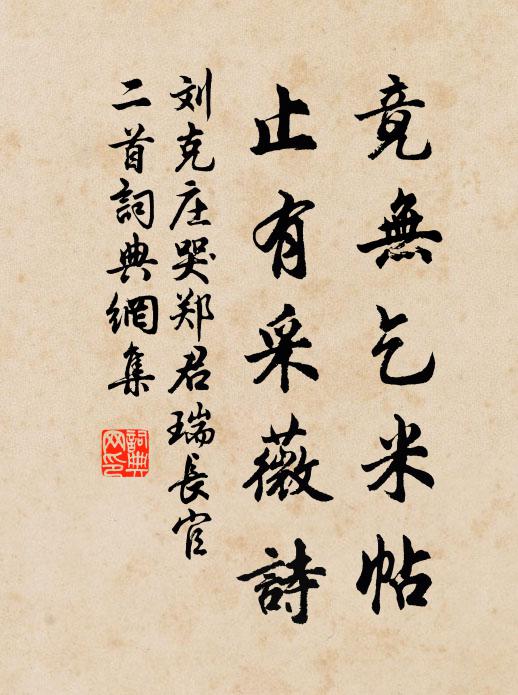 竟無乞米帖
止有采薇詩
刘克庄哭郑君瑞長官
二首詞典網集
詞典
网印